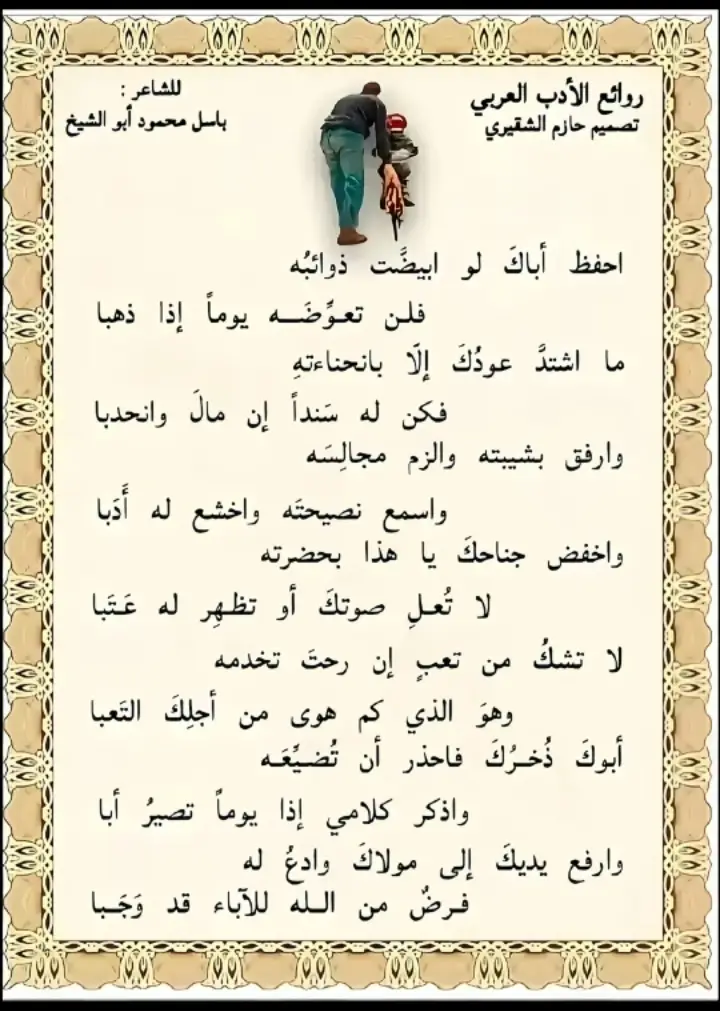 روائع الأدب العربي
تصميم حازم الشقيري
للشاعر :
باسل محمود أبو الشيخ
احفظ أباكَ لو ابيضَّت ذوائبُه
فلـن تعـوِّضَـــه يوماً إذا ذهبا
ما اشتدَّ عودُكَ إلّا بانحناءتهِ
فكن له سَنداً إن مالَ وانحدبا
وارفق بشيبته والزم مجالِسَه
واسمع نصيحتَه واخشع له أَدَبا
واخفض جناحكَ يا هذا بحضرته
لا تُعـلِ صوتكَ أو تظـهِر له عَـتَبا
لا تشكُ من تعبٍ إن رحتَ تخدمه
وهوَ الذي كم هوى من أجلِكَ التَعبا
أبوكَ ذُخـرُكَ فاحذر أن تُضـيِّعَـه
واذكر كلامي إذا يوماً تصيرُ أبا
وارفع يديكَ إلى مولاكَ وادعُ له
فـرضٌ من اللـه للآباء قد وَجَـبا